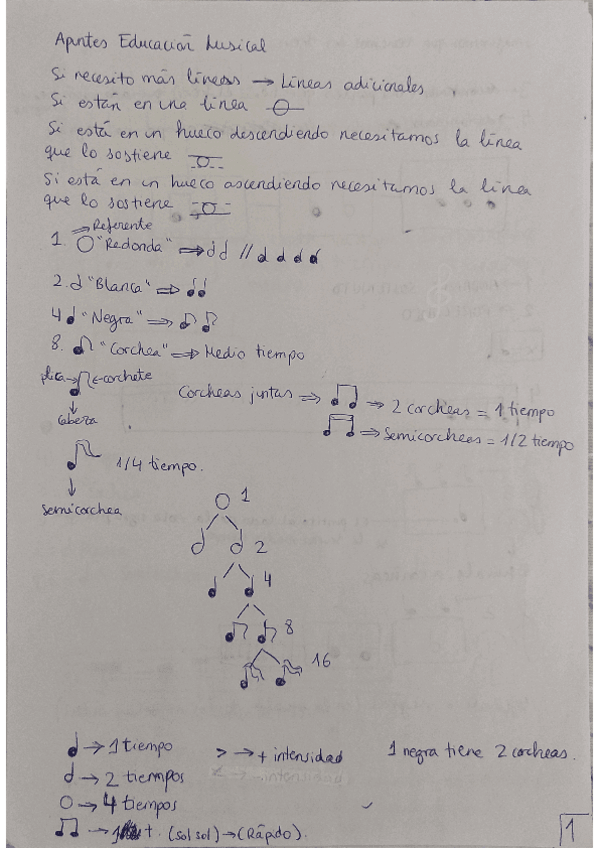 Apuntes Educación Musical
Si necesito más líneas → Líneas adicionales
Si están en una línea
Si está en un hueco descendiendo necesitamos la línea
que lo sostiene
Si está en un hueco ascendiendo necesitamos la línea
que lo sostiene
⇒ Referente
1. "Redonda" ⇒ //
2. "Blanca" ⇒
4 "Negra" ⇒
8. "Corchea" ⇒ Medio tiempo
plica → ← corchete
Corcheas juntas ⇒ ⇒ 2 corcheas = 1 tiempo
↓
cabeza
⇒ Semicorcheas = 1/2 tiempo
1/4 tiempo.
↓
Semicorchea
1
2
4
8
16
→ 1 tiempo > → + intensidad 1 negra tiene 2 corcheas.
→ 2 tiempos
→ 4 tiempos
→ 1 t. (sol sol) → (Rápido).
1